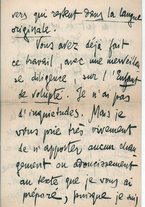 vers qui restent dans la langue
originale.
Vous avez déjà fait
ce travail, avec une merveilleuse
diligence sur l'"Enfant
de volupté". Je n'ai pas
d'inquiétudes. Mais je
vous prie très vivement
de n'apporter aucun chan-
gement ou adoucissement
au texte que je vous ai
préparé, puisque je suis